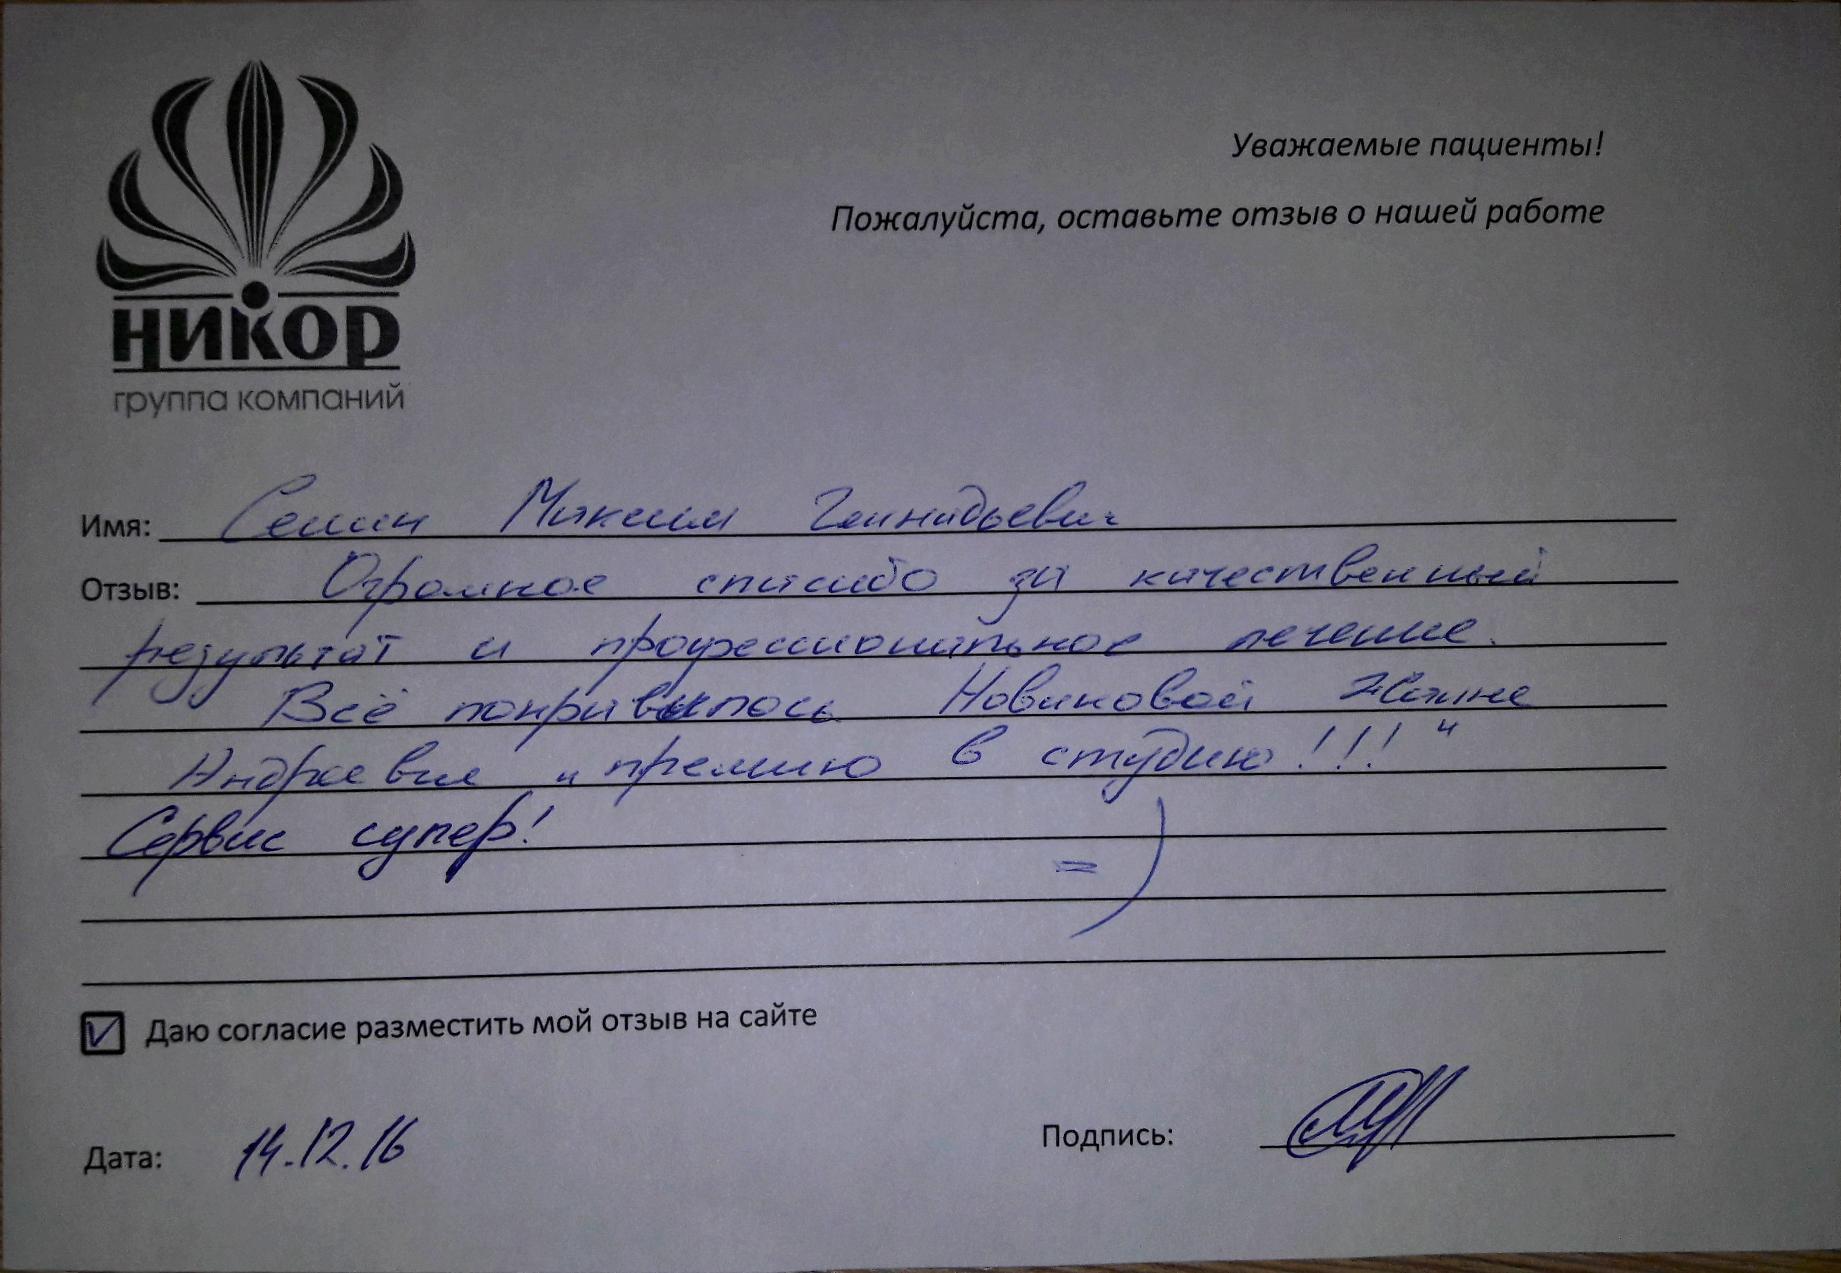 никор
группа компаний
Уважаемые пациенты!
Пожалуйста, оставьте отзыв о нашей работе
Имя: Семин Максим Геннадьевич
Отзыв: Огромное спасибо за качественный
результат и професиональное лечение.
Всё понравилось Новиковой Жанне
Андреевне "премию в студию!!!"
Сервис супер!
=)
Даю согласие разместить мой отзыв на сайте
Дата: 14.12.16
Подпись: